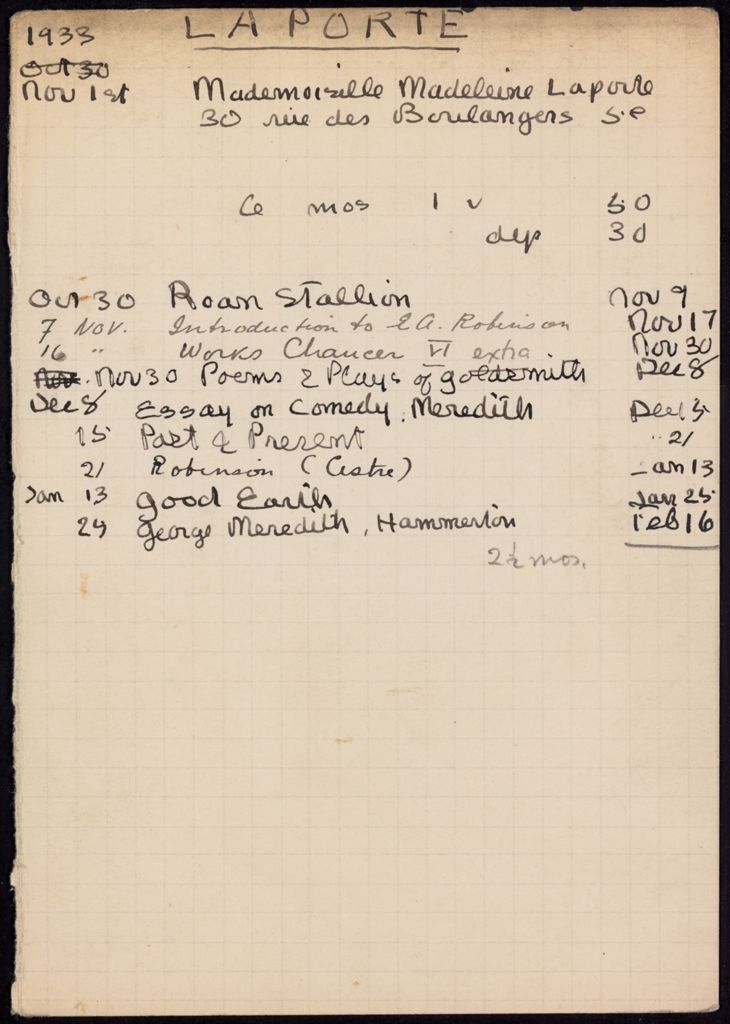 1933 LAPORTE
Oct 30
Nov 1st Mademoiselle Madeleine Laporte
30 rue des Boulangers 5e
6 mos 1 v 50
dep 30
Oct 30 Roan Stallion Nov 9
7 Nov. Introduction to E A. Robinson Nov 17
16 " Works Chaucer VI extra Nov 30
Nov 30 Poems & Plays of goldsmith Dec 8
Dec 8 Essay on Comedy, Meredith Dec 15
15 Past & Present " 21
21 Robinson (Cestre) Jan 13
Jan 13 Good Earth Jan 25
25 George Meredith, Hammerton Feb 16
2½ mos.